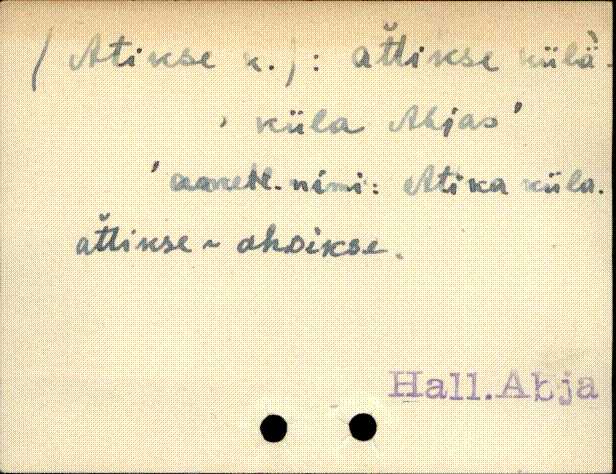 ( Atikse k. ) : at̆t̆ikse külä̀-
' küla Abjas '
' ametl. nimi : Atika küla.
at̆t̆ikse ~ ahsikse.
Hall. Abja